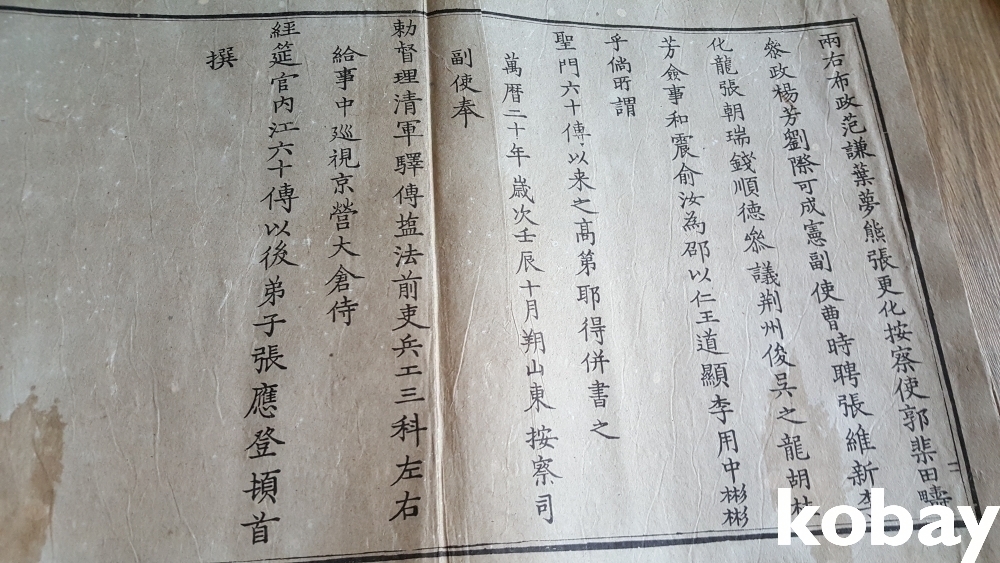 兩右布政范謙葉夢熊張更化按察使郭棐田疇
叅政楊芳劉際可成憲副使曹時聘張維新李
化龍張朝瑞錢順德叅議荆州俊吳之龍胡杜
芳僉事和震俞汝為邵以仁王道顯李用中彬彬
乎倘所謂
聖門六十傳以来之高第耶得併書之
萬曆二十年歲次壬辰十月朔山東按察司
副使奉
勅督理清軍驛傳塩法前吏兵工三科左右
給事中廵視京營大倉侍
經筵官内江六十傳以後弟子張應登頓首
撰
kobay